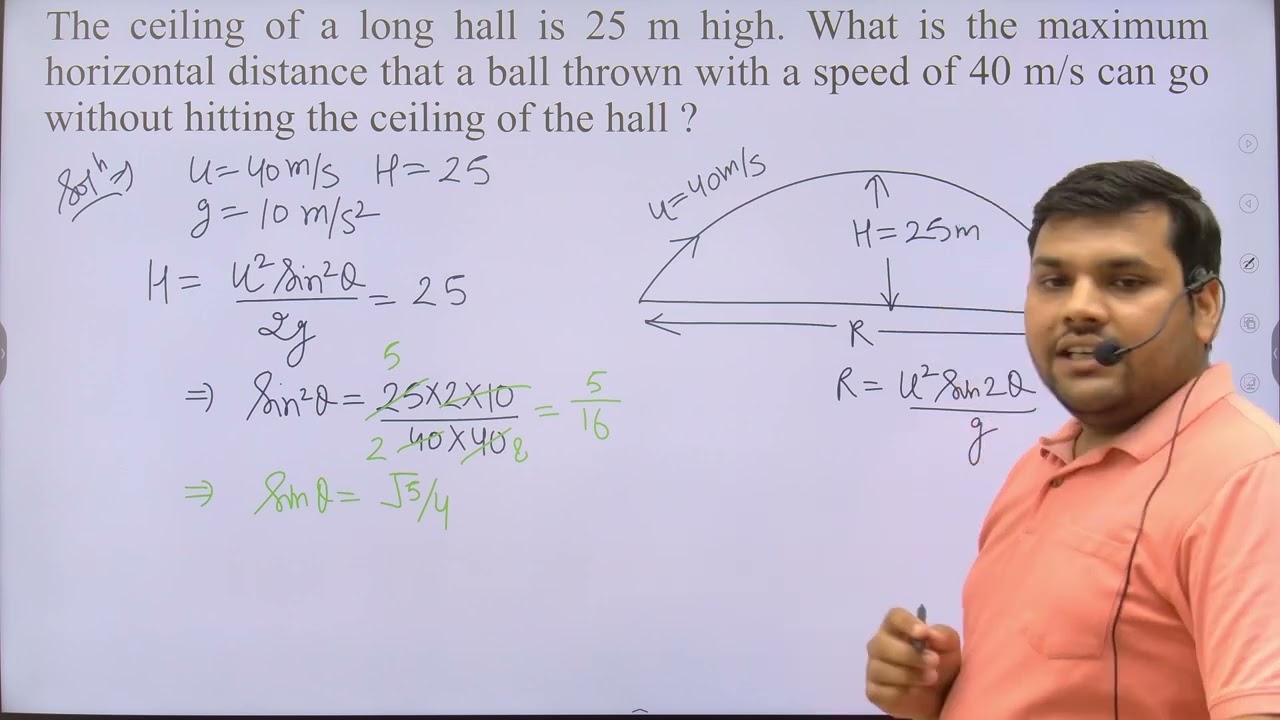 The ceiling of a long hall is 25 m high. What is the maximum
horizontal distance that a ball thrown with a speed of 40 m/s can go
without hitting the ceiling of the hall ?
Solⁿ ⇒ u = 40 m/s H = 25
g = 10 m/s²
H = u² sin²θ / 2g = 25
⇒ sin²θ = 25×2×10 / 40×40 = 5/16
5
2 8
⇒ sinθ = √5/4
u = 40 m/s
H = 25 m
R
R = u² sin2θ / g